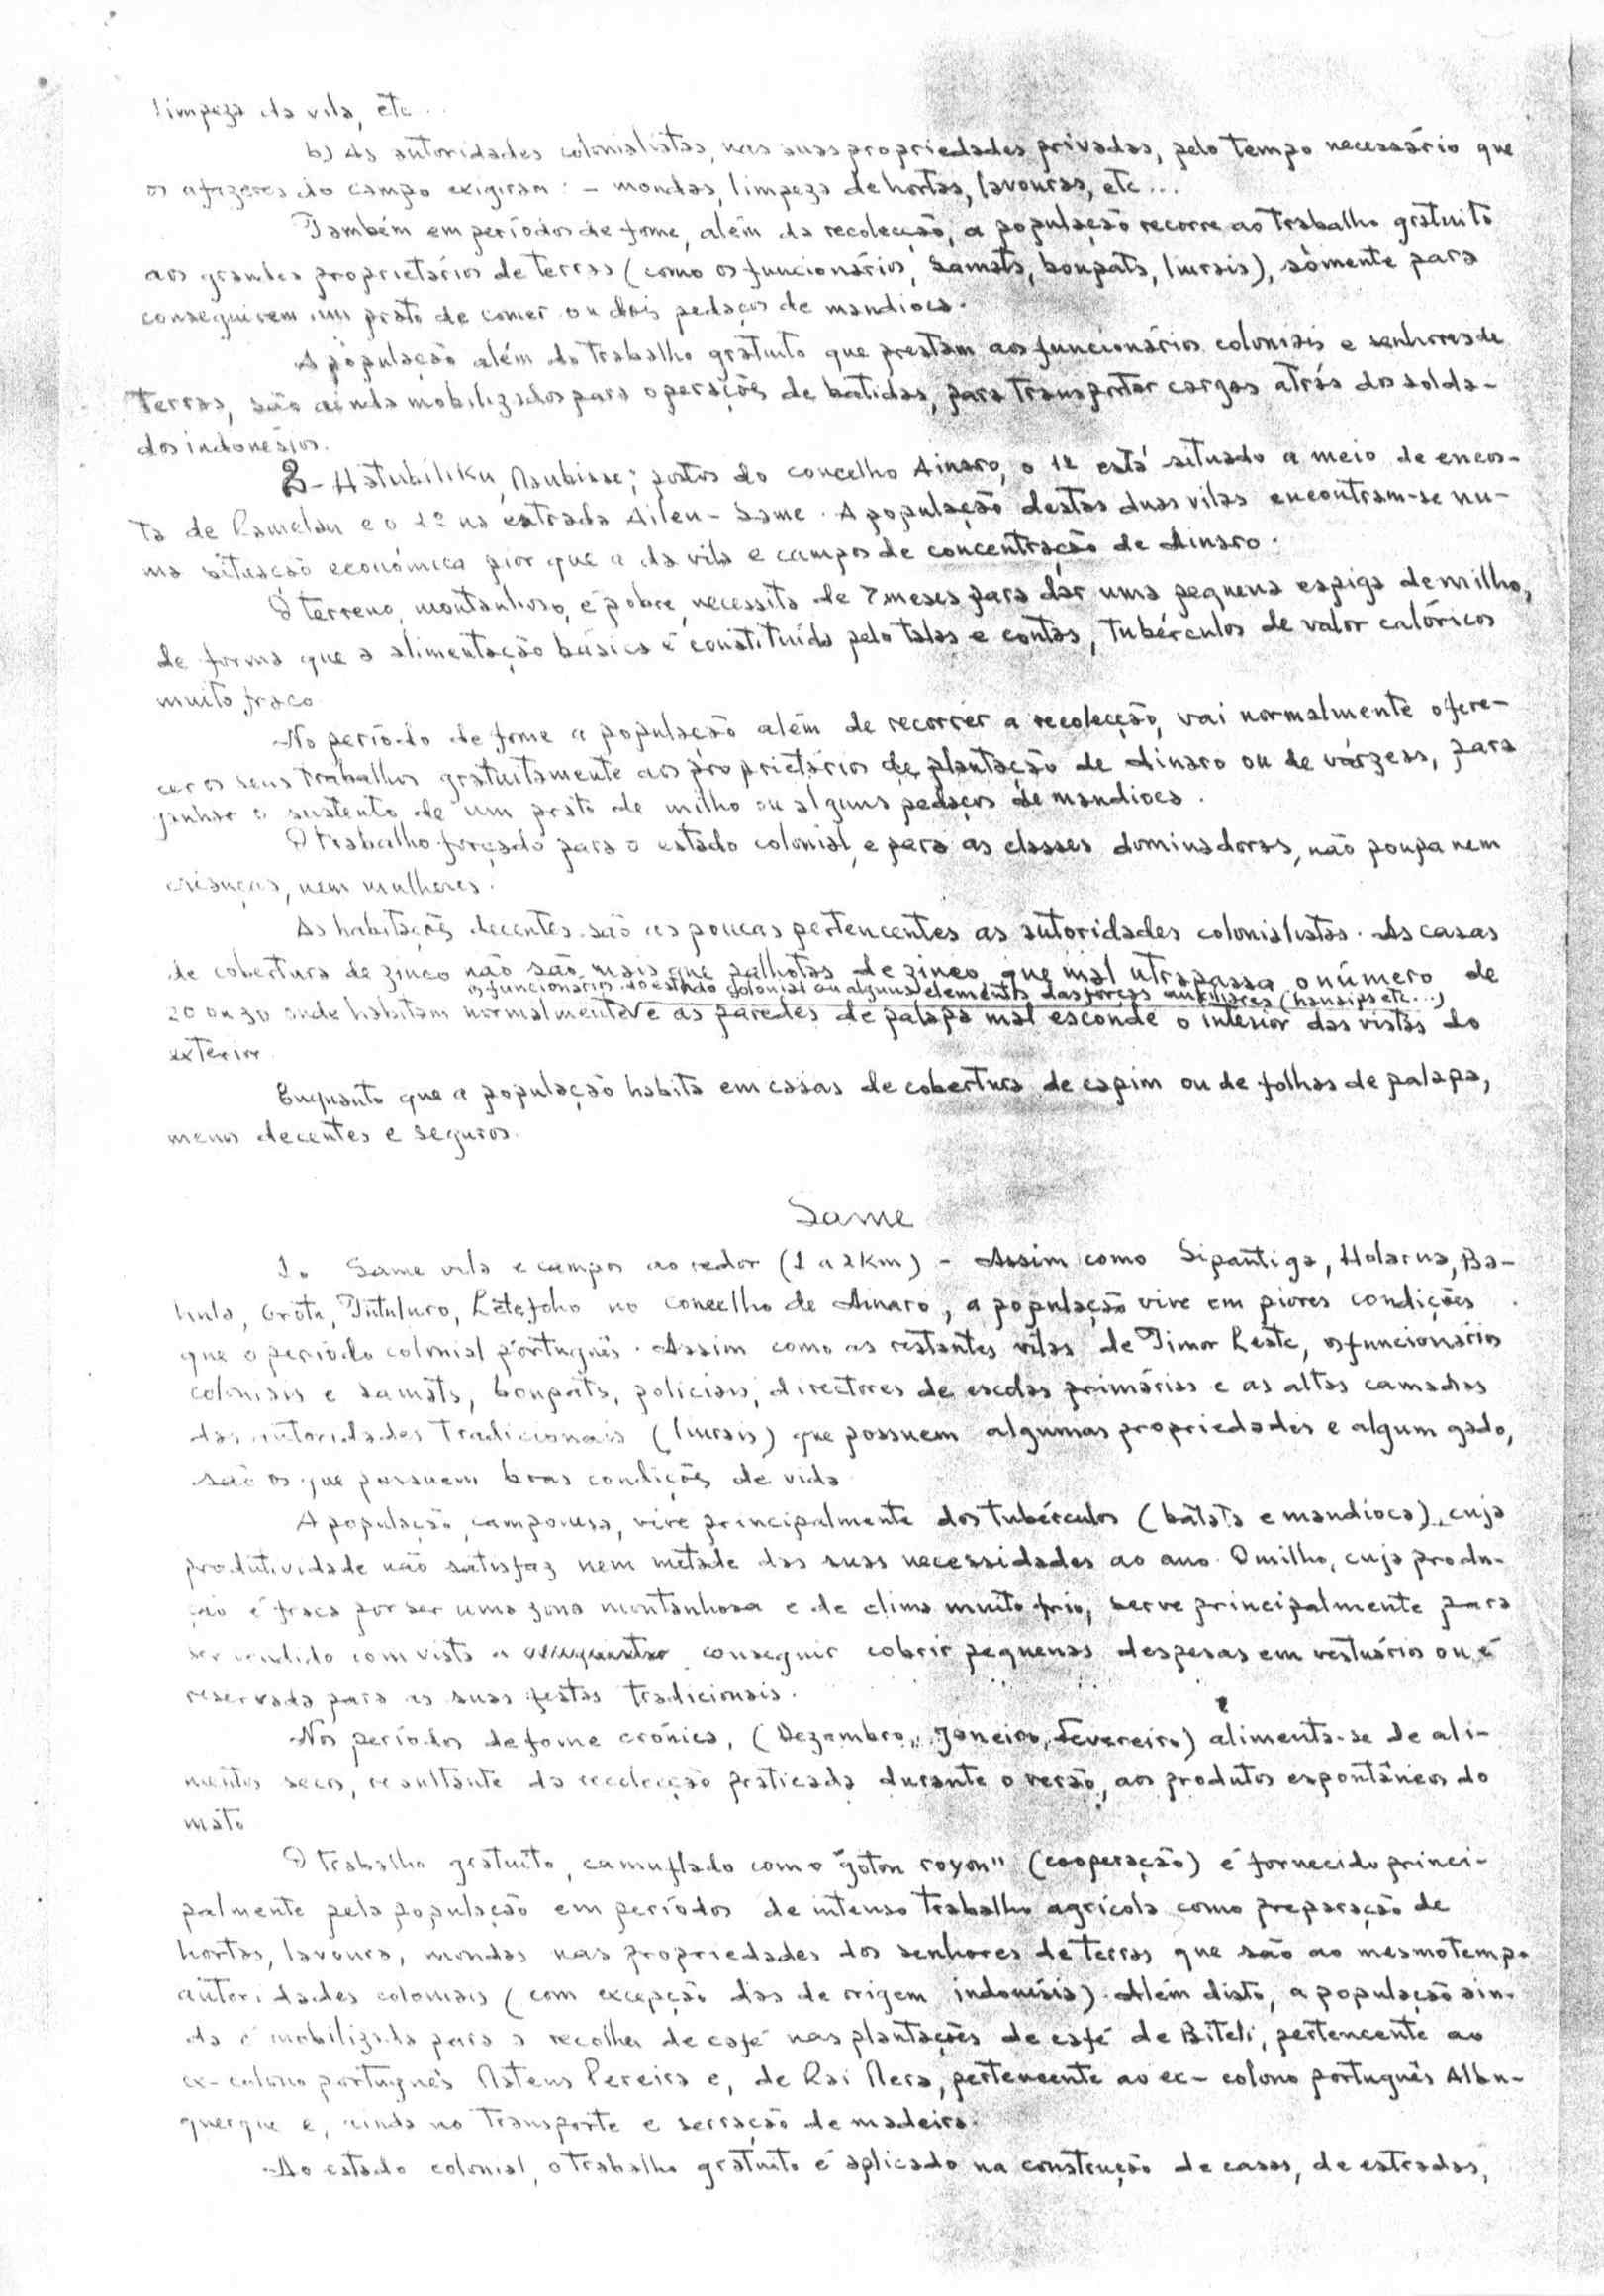 limpeza da vila, etc...
b) As autoridades colonialistas, nas suas propriedades privadas, pelo tempo necessário que
os afazeres do campo exigiram: - mondas, limpeza de hortas, lavouras, etc...
Também em períodos de fome, além da recolecção, a população recorre ao trabalho gratuito
aos grandes proprietários de terras (como os funcionários, samats, boupats, liurais), sòmente para
conseguirem um prato de comer ou dois pedaços de mandioca.
A população além do trabalho gratuito que prestam aos funcionários coloniais e senhores de
terras, são ainda mobilizados para operações de batidas, para transportar cargas atrás dos solda-
dos indonésios.
2- Hatubiliku, Maubisse; postos do concelho Ainaro, o 1º está situado a meio de encos-
ta de Ramelau e o 2º na estrada Aileu - Same. A população destas duas vilas encontram-se nu-
ma situação económica pior que a da vila e campos de concentração de Ainaro.
O terreno, montanhoso, é pobre, necessita de 7 meses para dar uma pequena espiga de milho,
de forma que a alimentação básica é constituída pelo talas e contas, tubérculos de valor calóricos
muito fraco.
No período de fome a população além de recorrer a recolecção, vai normalmente ofere-
cer os seus trabalhos gratuitamente aos proprietários de plantação de Ainaro ou de várzeas, para
ganhar o sustento de um prato de milho ou alguns pedaços de mandioca.
O trabalho forçado para o estado colonial, e para as classes dominadoras, não poupa nem
crianças, nem mulheres.
As habitações decentes são as poucas pertencentes as autoridades colonialistas. As casas
de cobertura de zinco não são mais que palhotas de zinco que mal utrapassa o número de
os funcionários do estado colonial ou alguns elementos das forças auxiliares (hansips etc...)
20 ou 30 onde habitam normalmente e as paredes de palapa mal esconde o interior das vistas do
exterior.
Enquanto que a população habita em casas de cobertura de capim ou de folhas de palapa,
menos decentes e seguros.
Same
1. Same vila e campos ao redor (1 a 2 km) - Assim como Sipantiga, Holarua, Ba-
hula, Grotu, Tutuluro, Letefoho no concelho de Ainaro, a população vive em piores condições
que o período colonial português. Assim como as restantes vilas de Timor Leste, os funcionários
coloniais e samats, boupats, policiais, directores de escolas primárias e as altas camadas
das autoridades tradicionais (liurais) que possuem algumas propriedades e algum gado,
são os que possuem boas condições de vida.
A população, camponesa, vive principalmente dos tubérculos (batata e mandioca), cuja
produtividade não satisfaz nem metade das suas necessidades ao ano. O milho, cuja produ-
ção é fraca por ser uma zona montanhosa e de clima muito frio, serve principalmente para
ser vendido com vista a conseguir cobrir pequenas despesas em vestuários ou é
reservada para as suas festas tradicionais.
Nos períodos de fome crónica, (Dezembro, Janeiro, Fevereiro) alimenta-se de ali-
mentos secos, resultante da recolecção praticada durante o verão, aos produtos espontâneos do
mato.
O trabalho gratuito, camuflado como "goton royon" (cooperação) é fornecido princi-
palmente pela população em períodos de intenso trabalho agrícola como preparação de
hortas, lavoura, mondas nas propriedades dos senhores de terras que são ao mesmo tempo
autoridades coloniais (com excepção das de origem indonésia). Além disto, a população ain-
da é mobilizada para a recolha de café nas plantações de café de Biteli, pertencente ao
ex-colono português Mateus Pereira e, de Rai Mera, pertencente ao ex-colono português Albu-
querque e, ainda no transporte e serração de madeira.
Ao estado colonial, o trabalho gratuito é aplicado na construção de casas, de estradas,